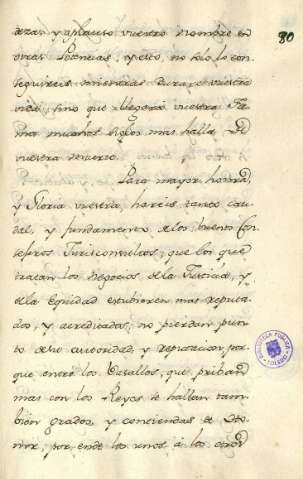 80
dezas y aplauso vuestro nombre en
otras Potencias, y esto, no solo lo con-
seguireis mientras durare vuestra
vida, sino que llegará vuestra Fa-
ma muchos siglos mas halla de
vuestra muerte.
Para mayor honra,
y Gloria vuestra, hareis tanto cau-
dal, y fundamento de los buenos Con-
sejeros Jurisconsultos, que los que
tratan los Negocios de la Justicia, y
de la equidad estubieren mas reputa-
dos, y acreditados, no pierdan pun-
to de su autoridad, y reputacion por-
que entre los Vasallos, que priban
mas con los Reyes se hallan tam-
bien grados, y contiendas de Ho-
nor, por ende los unos á los otros
BIBLIOTECA PUBLICA
TOLEDO